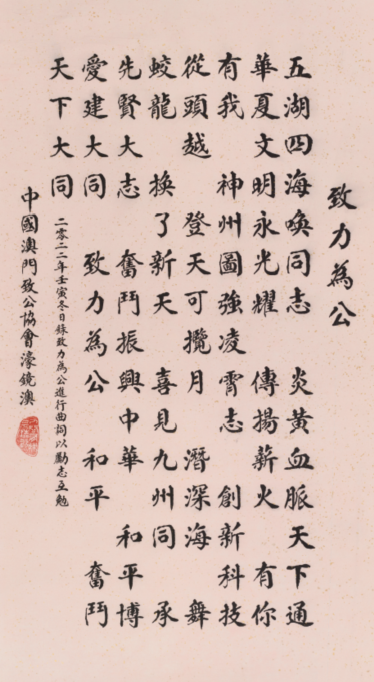 致力為公
五湖四海喚同志 炎黃血脈天下通
華夏文明永光耀 傳揚薪火 有你
有我 神州圖強凌霄志 創新科技
從頭越 登天可攬月 潛深海 舞
蛟龍 換了新天 喜見九州同 承
先賢大志 奮鬥振興中華 和平博
愛建大同 致力為公 和平 奮鬥
天下大同
二零二二年壬寅冬日錄致力為公進行曲詞以勵志互勉
中國澳門致公協會濠鏡澳